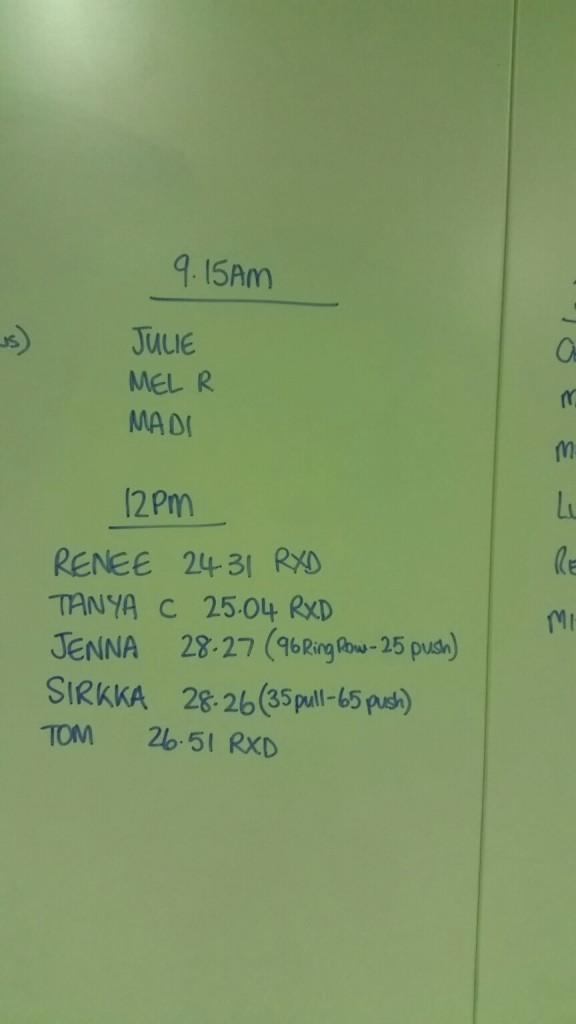 9.15AM
us)
JULIE
MEL R
MADI
12PM
RENEE 24.31 RXD
TANYA C 25.04 RXD
JENNA 28.27 (96 Ring Row - 25 push)
SIRKKA 28.26 (35 pull - 65 push)
TOM 26.51 RXD